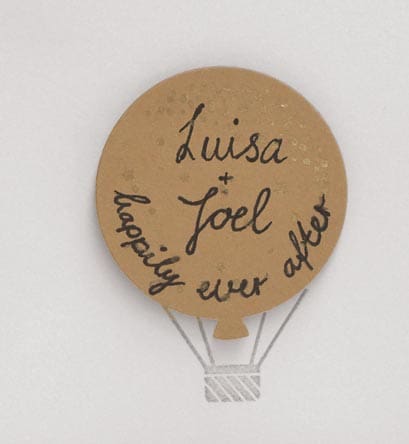 Luisa
+
Joel
happily ever after